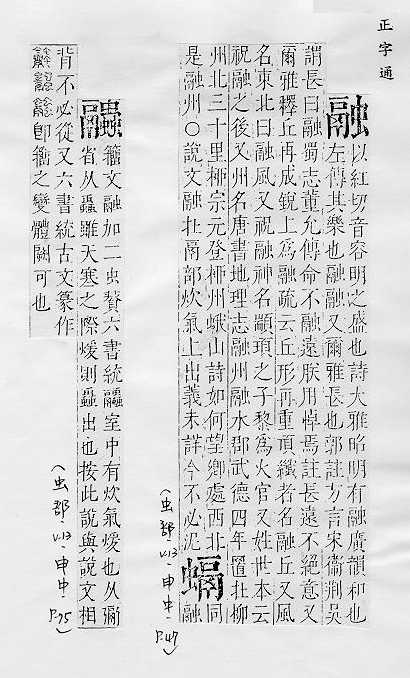 正字通
融以紅切音容明之盛也詩大雅昭明有融廣韻和也
左傳其樂也融融又爾雅長也郭註方言宋衞荆吳
謂長曰融蜀志董允傳命不融遠朕用悼焉註長遠不絕意又
爾雅釋丘再成銳上爲融疏云丘形再重頂纖者名融丘又風
名東北曰融風又祝融神名顓頊之子黎爲火官又姓世本云
祝融之後又州名唐書地理志融州融水郡武德四年置在柳
州北三十里柳宗元登柳州蛾山詩如何望鄉處西北
是融州〇說文融在鬲部炊氣上出義未詳今不必泥
螎同
融
(虫部.V.13.申中.P.47)
𧖓籒文融加二虫贅六書統融室中有炊氣煖也从䰜
省从蟲雖天寒之際煖則蟲出也按此說與說文相
背不必從又六書統古文篆作
卽籒之變體闕可也
(虫部.V.13.申中.P.75)